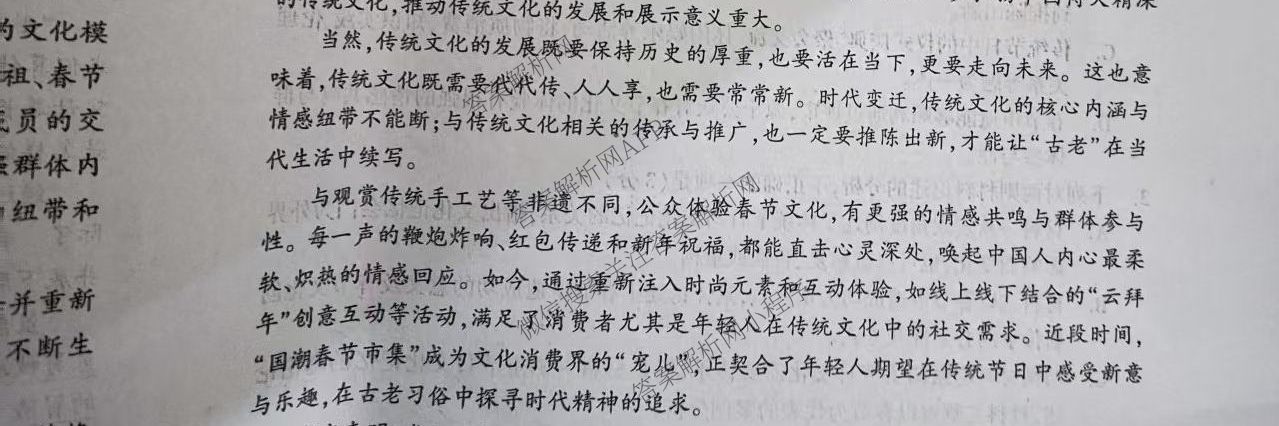 的文化模
祖、春节
员的交
群体内
纽带和
并重新
不断生
的传统文化,推动传统文化的发展和展示意义重大。
当然,传统文化的发展既要保持历史的厚重,也要活在当下,更要走向未来。这也意
味着,传统文化既需要代代传、人人享,也需要常常新。时代变迁,传统文化的核心内涵与
情感纽带不能断;与传统文化相关的传承与推广,也一定要推陈出新,才能让“古老”在当
代生活中续写。
与观赏传统手工艺等非遗不同,公众体验春节文化,有更强的情感共鸣与群体参与
性。每一声的鞭炮炸响、红包传递和新年祝福,都能直击心灵深处,唤起中国人内心最柔
软、炽热的情感回应。如今,通过重新注入时尚元素和互动体验,如线上线下结合的“云拜
年”创意互动等活动,满足了消费者尤其是年轻人在传统文化中的社交需求。近段时间,
“国潮春节市集”成为文化消费界的“宠儿”,正契合了年轻人期望在传统节日中感受新意
与乐趣,在古老习俗中探寻时代精神的追求。
答案解析网
答案解析网APP
微信搜索关注答案解析网
答案解析网小程序